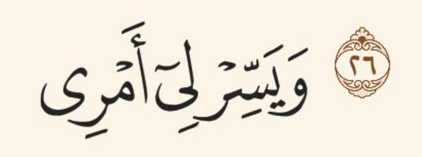 وَيَسِّرۡ لِيٓ أَمۡرِي ٢٦